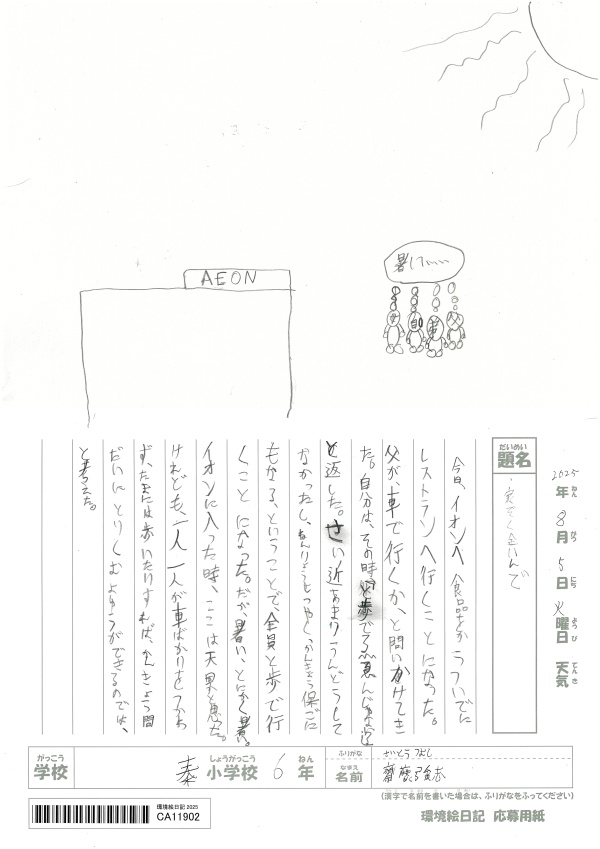 AEON
暑い……
だいめい
題名
家ぞく全いんで
2025年 8月 5日 火曜日 天気
ねん がつ にち ようび てんき
今日、イオンへ食品
レストランへ行くことになった。
父が、車で行くか、と問いかけてき
た。自分は、その時
と返した。さい近あまりうんどうして
なかったし、ねんりょうもせつやく、かんきょう保ごに
もなる、ということで、全員と歩で行
くことになった。だが、暑い、とにかく暑い。
イオンに入った時、ここは天界と思った。
けれども、一人一人が車ばかりをつかわ
ず、たまには歩いたりすれば、かんきょう問
だいにとりくむ
と考えた。
がっこう
学校
しょうがっこう ねん
小学校 6 年
ふりがな
さいとう
なまえ
名前
(漢字で名前を書いた場合は、ふりがなをふってください)
環境絵日記 2025
CA11902
環境絵日記 応募用紙